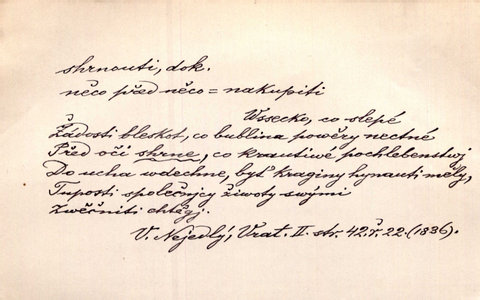 shrnouti, dok.
něco před něco = nakupiti
Wssecko, co slepé
Žádosti bleskot, co bublina powěry nectné
Před oči shrne, co krautiwé pochlebenstwj
Do ucha wdechne, byť kraginy hynauti měly,
Tuposti společnjcy žiwoty swými
Zwěčniti chtěgj.
V. Nejedlý, Vrat. II. str. 42. ř. 22. (1836).